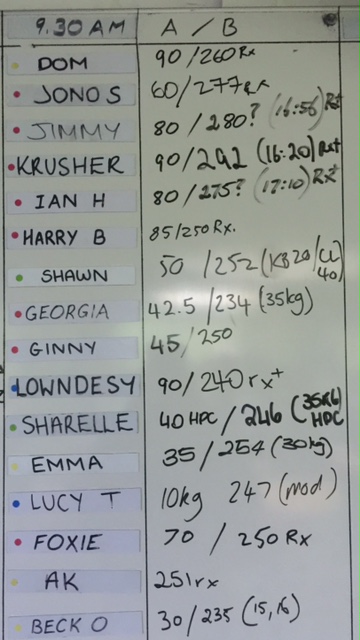 9.30 AM A / B
DOM 90/260 Rx
JONO S 60/277 Rx
JIMMY 80/280? (16:56) Rx+
KRUSHER 90/292 (16:20) Rx+
IAN H 80/275? (17:10) Rx+
HARRY B 85/250 Rx.
SHAWN 50/252 (KB20/CL 40)
GEORGIA 42.5/234 (35kg)
GINNY 45/250
LOWNDESY 90/240 rx+
SHARELLE 40 HPC/246 (35KG HPC)
EMMA 35/254 (30kg)
LUCY T 10kg 247 (mod)
FOXIE 70/250 Rx
AK 251 rx
BECK O 30/235 (15,16)